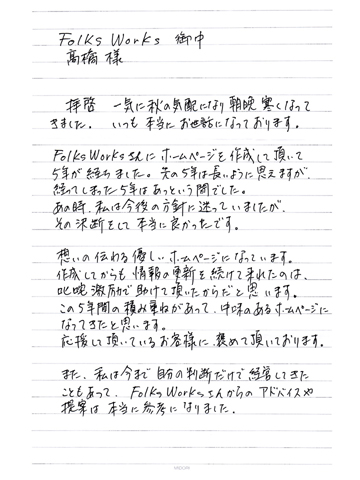 Folks Works 御中
高橋 様
拝啓 一気に秋の気配になり朝晩寒くなって
きました。 いつも本当にお世話になっております。
Folks Worksさんにホームページを作成して頂いて
5年が経ちました。先の5年は長いように思えますが、
経ってしまった5年はあっという間でした。
あの時、私は今後の方針に迷っていましたが、
その決断をして本当に良かったです。
想いの伝わる優しいホームページになっています。
作成してからも情報の更新を続けて来れたのは、
叱咤激励で助けて頂いたからだと思います。
この5年間の積み重ねがあって、中味のあるホームページに
なってきたと思います。
応援して頂いているお客様に、褒めて頂いております。
また、私は今まで自分の判断だけで経営してきた
こともあって、Folks Worksさんからのアドバイスや
提案は本当に参考になりました。